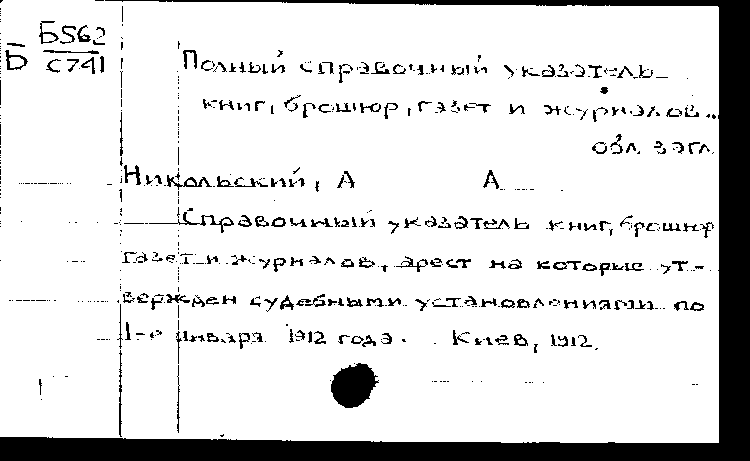 Б Б562
С741
Полный справочный указатель
книг, брошюр, газет и журналов...
обл. загл.
Никольский, А А
Справочный указатель книг, брошюр
газет и журналов, арест на которые ут-
вержден судебными установлениями по
1-е января 1912 года. Киев, 1912.